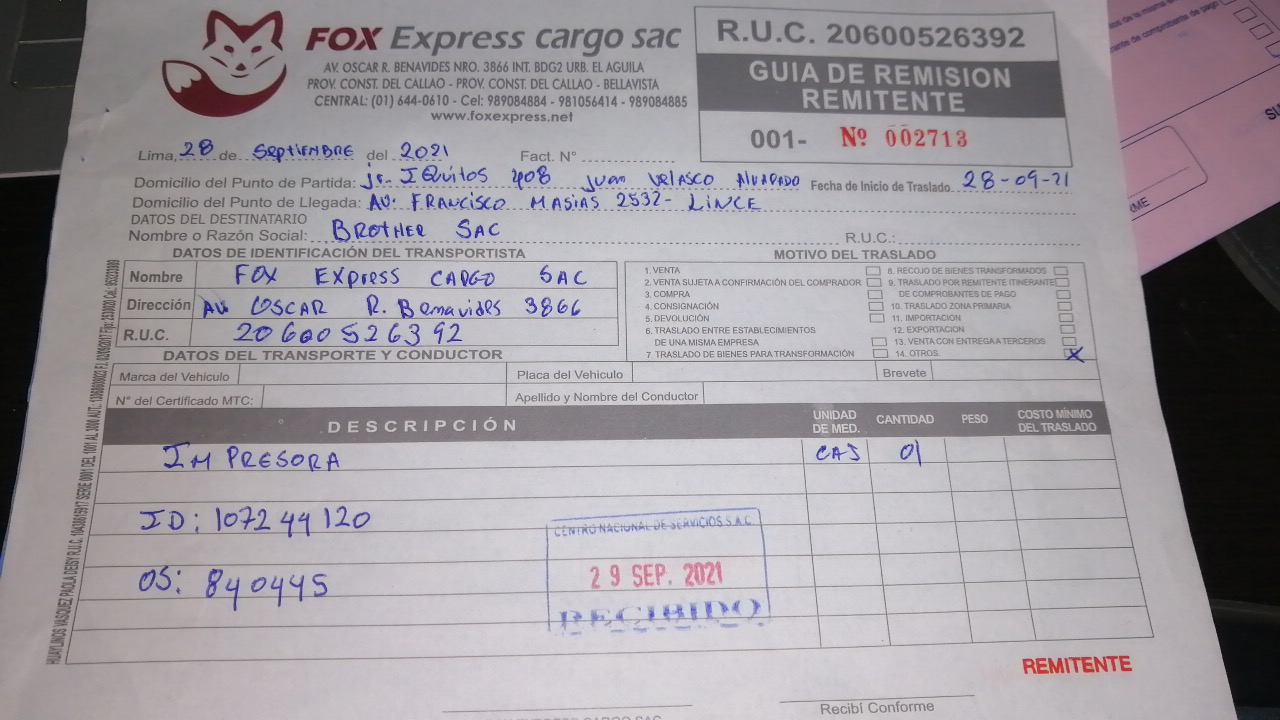 FOX Express cargo sac
AV. OSCAR R. BENAVIDES NRO. 3866 INT. BDG2 URB. EL AGUILA
PROV. CONST. DEL CALLAO - PROV. CONST. DEL CALLAO - BELLAVISTA
CENTRAL: (01) 644-0610 - Cel: 989084884 - 981056414 - 989084885
www.foxexpress.net
R.U.C. 20600526392
GUIA DE REMISION
REMITENTE
001- Nº 002713
Lima, 28 de SEPTIEMBRE del 2021 Fact. N°
Domicilio del Punto de Partida: jr. IQuitos 408 Juan VELASCO ALVARADO Fecha de Inicio de Traslado 28-09-21
Domicilio del Punto de Llegada: AV: FRANCISCO MASIAS 2532- LINCE
DATOS DEL DESTINATARIO
Nombre o Razón Social: BROTHER SAC R.U.C.:
DATOS DE IDENTIFICACIÓN DEL TRANSPORTISTA
Nombre FOX EXPRESS CARGO SAC
Dirección AV OSCAR R. Benavides 3866
R.U.C. 20600526392
MOTIVO DEL TRASLADO
1. VENTA
2. VENTA SUJETA A CONFIRMACIÓN DEL COMPRADOR
3. COMPRA
4. CONSIGNACIÓN
5. DEVOLUCIÓN
6. TRASLADO ENTRE ESTABLECIMIENTOS
DE UNA MISMA EMPRESA
7. TRASLADO DE BIENES PARA TRANSFORMACIÓN
8. RECOJO DE BIENES TRANSFORMADOS
9. TRASLADO POR REMITENTE ITINERANTE
DE COMPROBANTES DE PAGO
10. TRASLADO ZONA PRIMARIA
11. IMPORTACION
12. EXPORTACION
13. VENTA CON ENTREGA A TERCEROS
14. OTROS. X
DATOS DEL TRANSPORTE Y CONDUCTOR
Marca del Vehículo Placa del Vehículo Brevete
N° del Certificado MTC: Apellido y Nombre del Conductor
DESCRIPCIÓN UNIDAD DE MED. CANTIDAD PESO COSTO MÍNIMO DEL TRASLADO
IMPRESORA CAJ 01
ID: 107244120
OS: 840445
CENTRO NACIONAL DE SERVICIOS S.A.C.
29 SEP. 2021
RECIBIDO
REMITENTE
Recibí Conforme